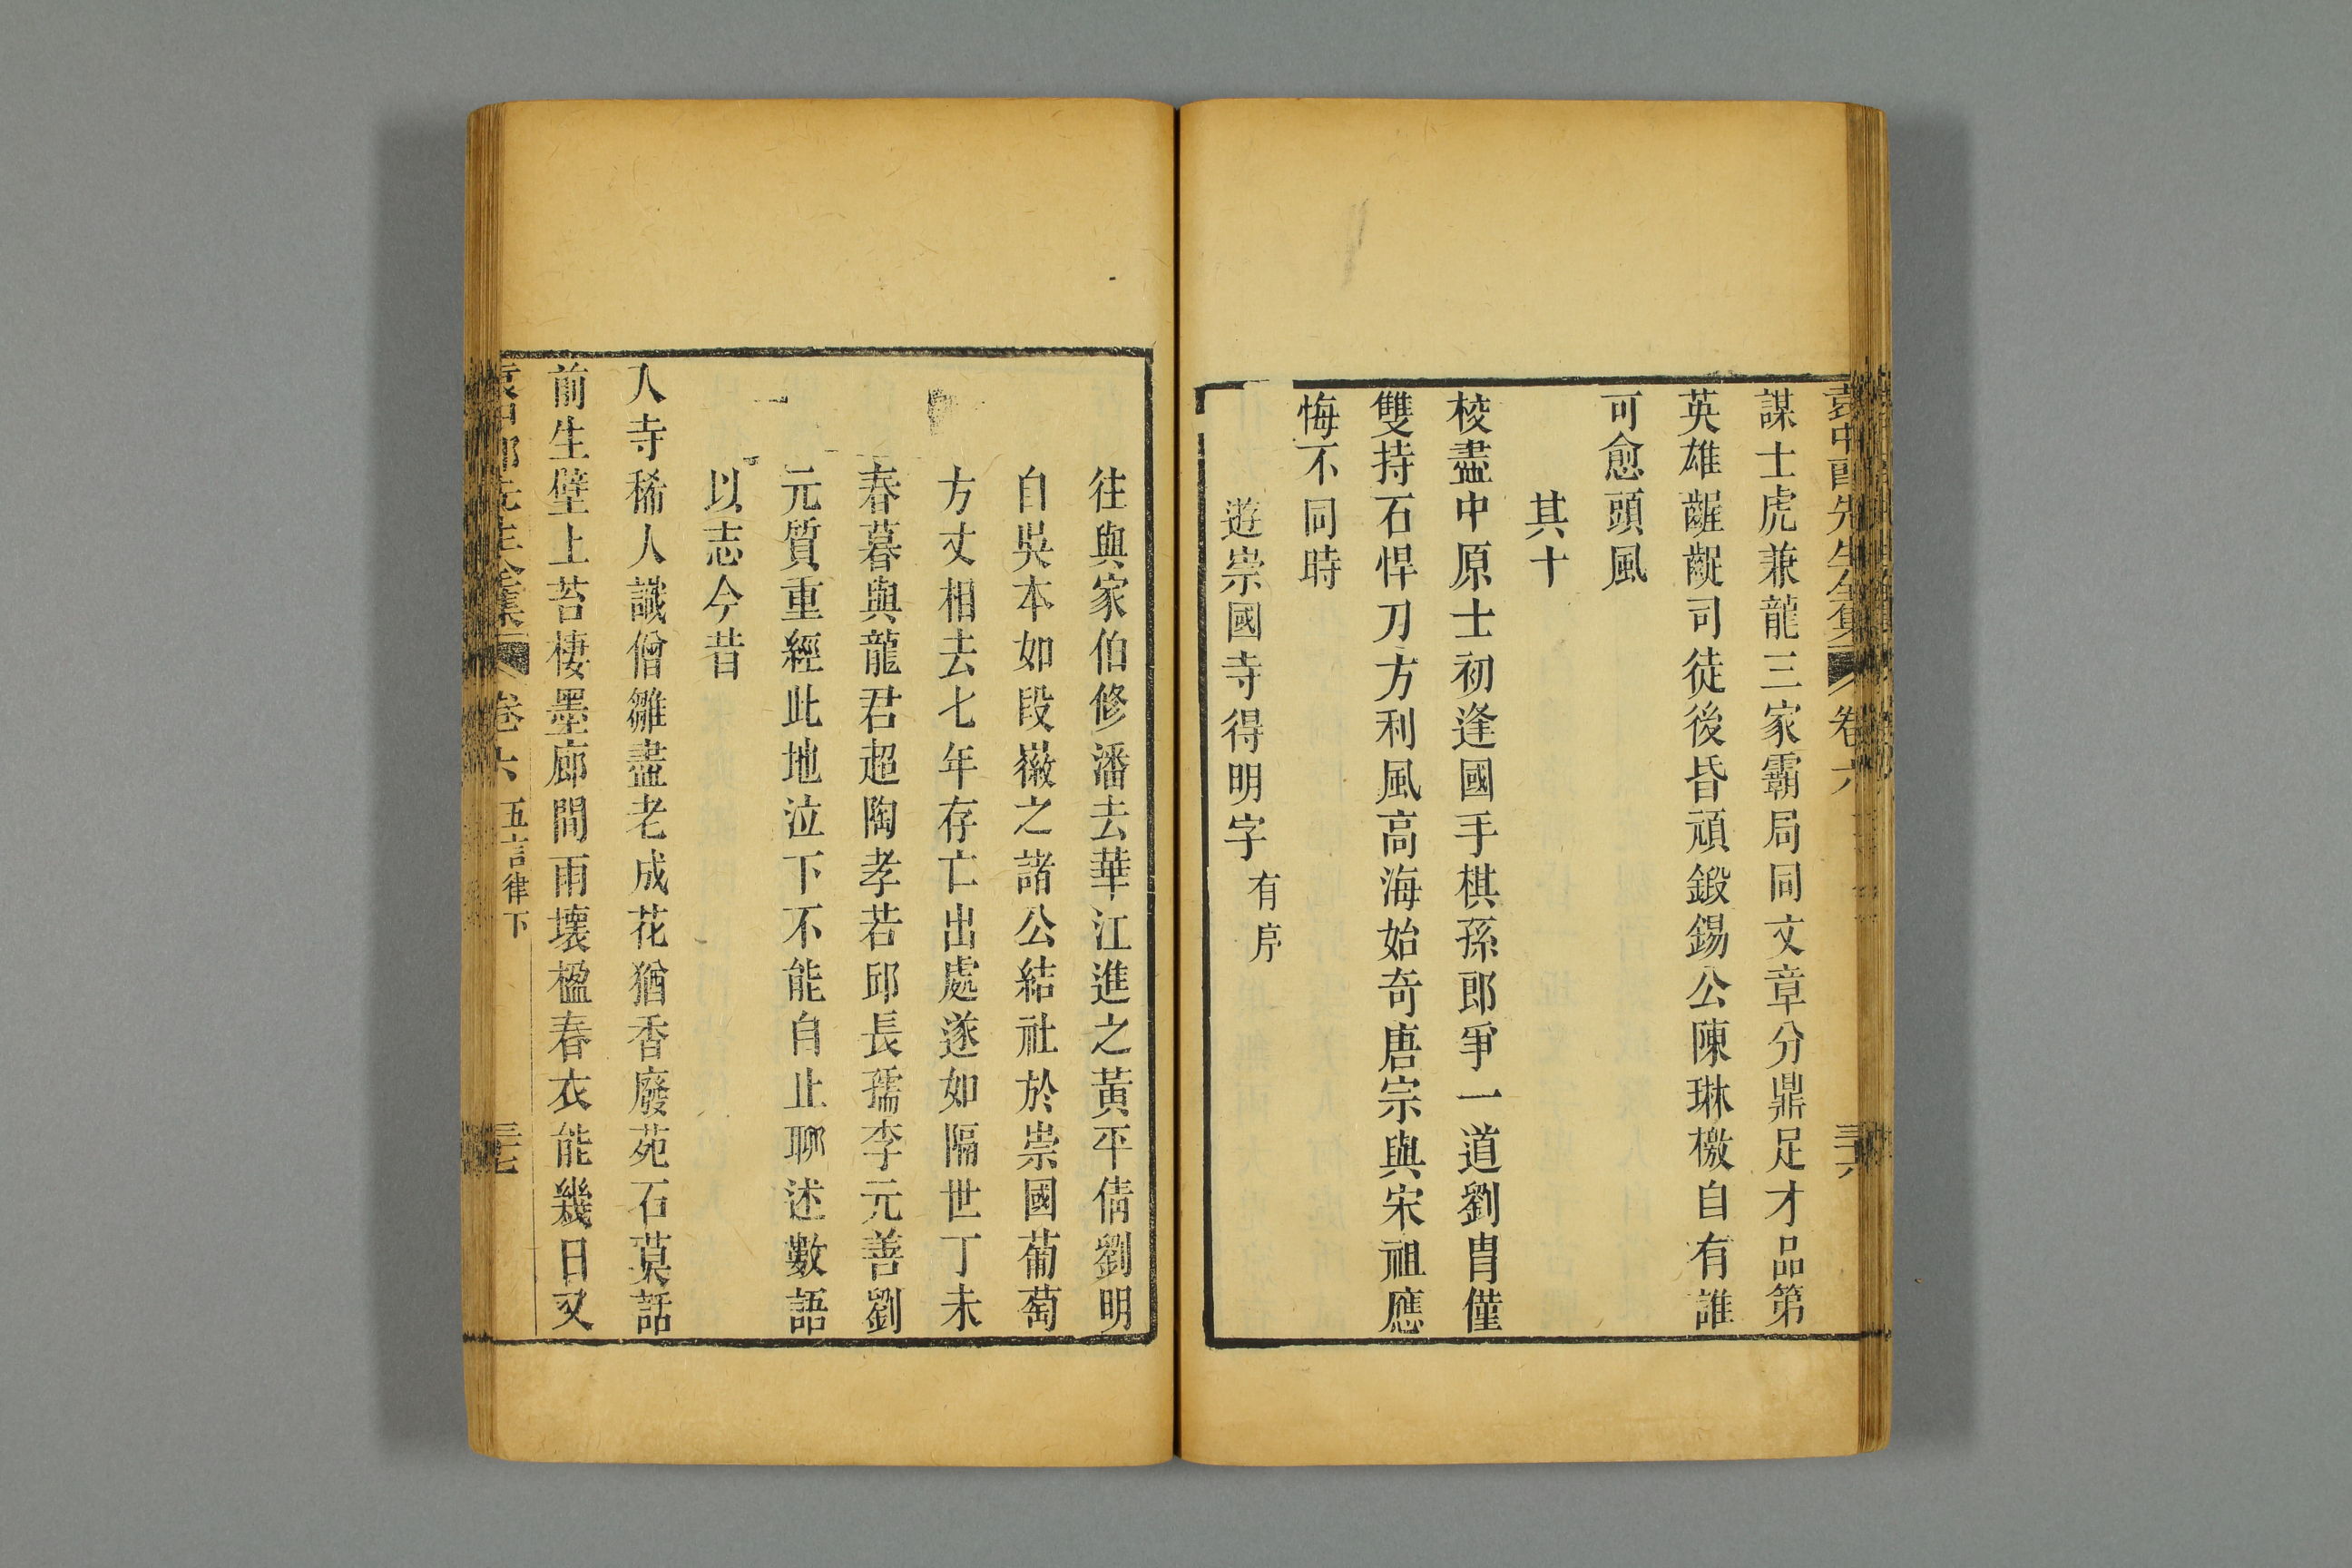 袁中郎先生全集 卷六 三十六
謀士虎兼龍三家霸局同文章分鼎足才品第
英雄齷齪司徒後昏頑鍛錫公陳琳檄自有誰
可愈頭風
其十
棱盡中原士初逢國手棋孫郎爭一道劉冑僅
雙持石悍刀方利風高海始奇唐宗與宋祖應
悔不同時
遊崇國寺得明字 有序
往與家伯修潘去華江進之黃平倩劉明
自吳本如段徽之諸公結社於崇國葡萄
方丈相去七年存亡出處遂如隔世丁未
春暮與龍君超陶孝若邱長孺李元善劉
元質重經此地泣下不能自止聊述數語
以志今昔
入寺稀人識僧雛盡老成花猶香廢苑石莫話
前生壁上苔棲墨廊間雨壞楹春衣能幾日又
袁中郎先生全集 卷六 五言律下 三十七